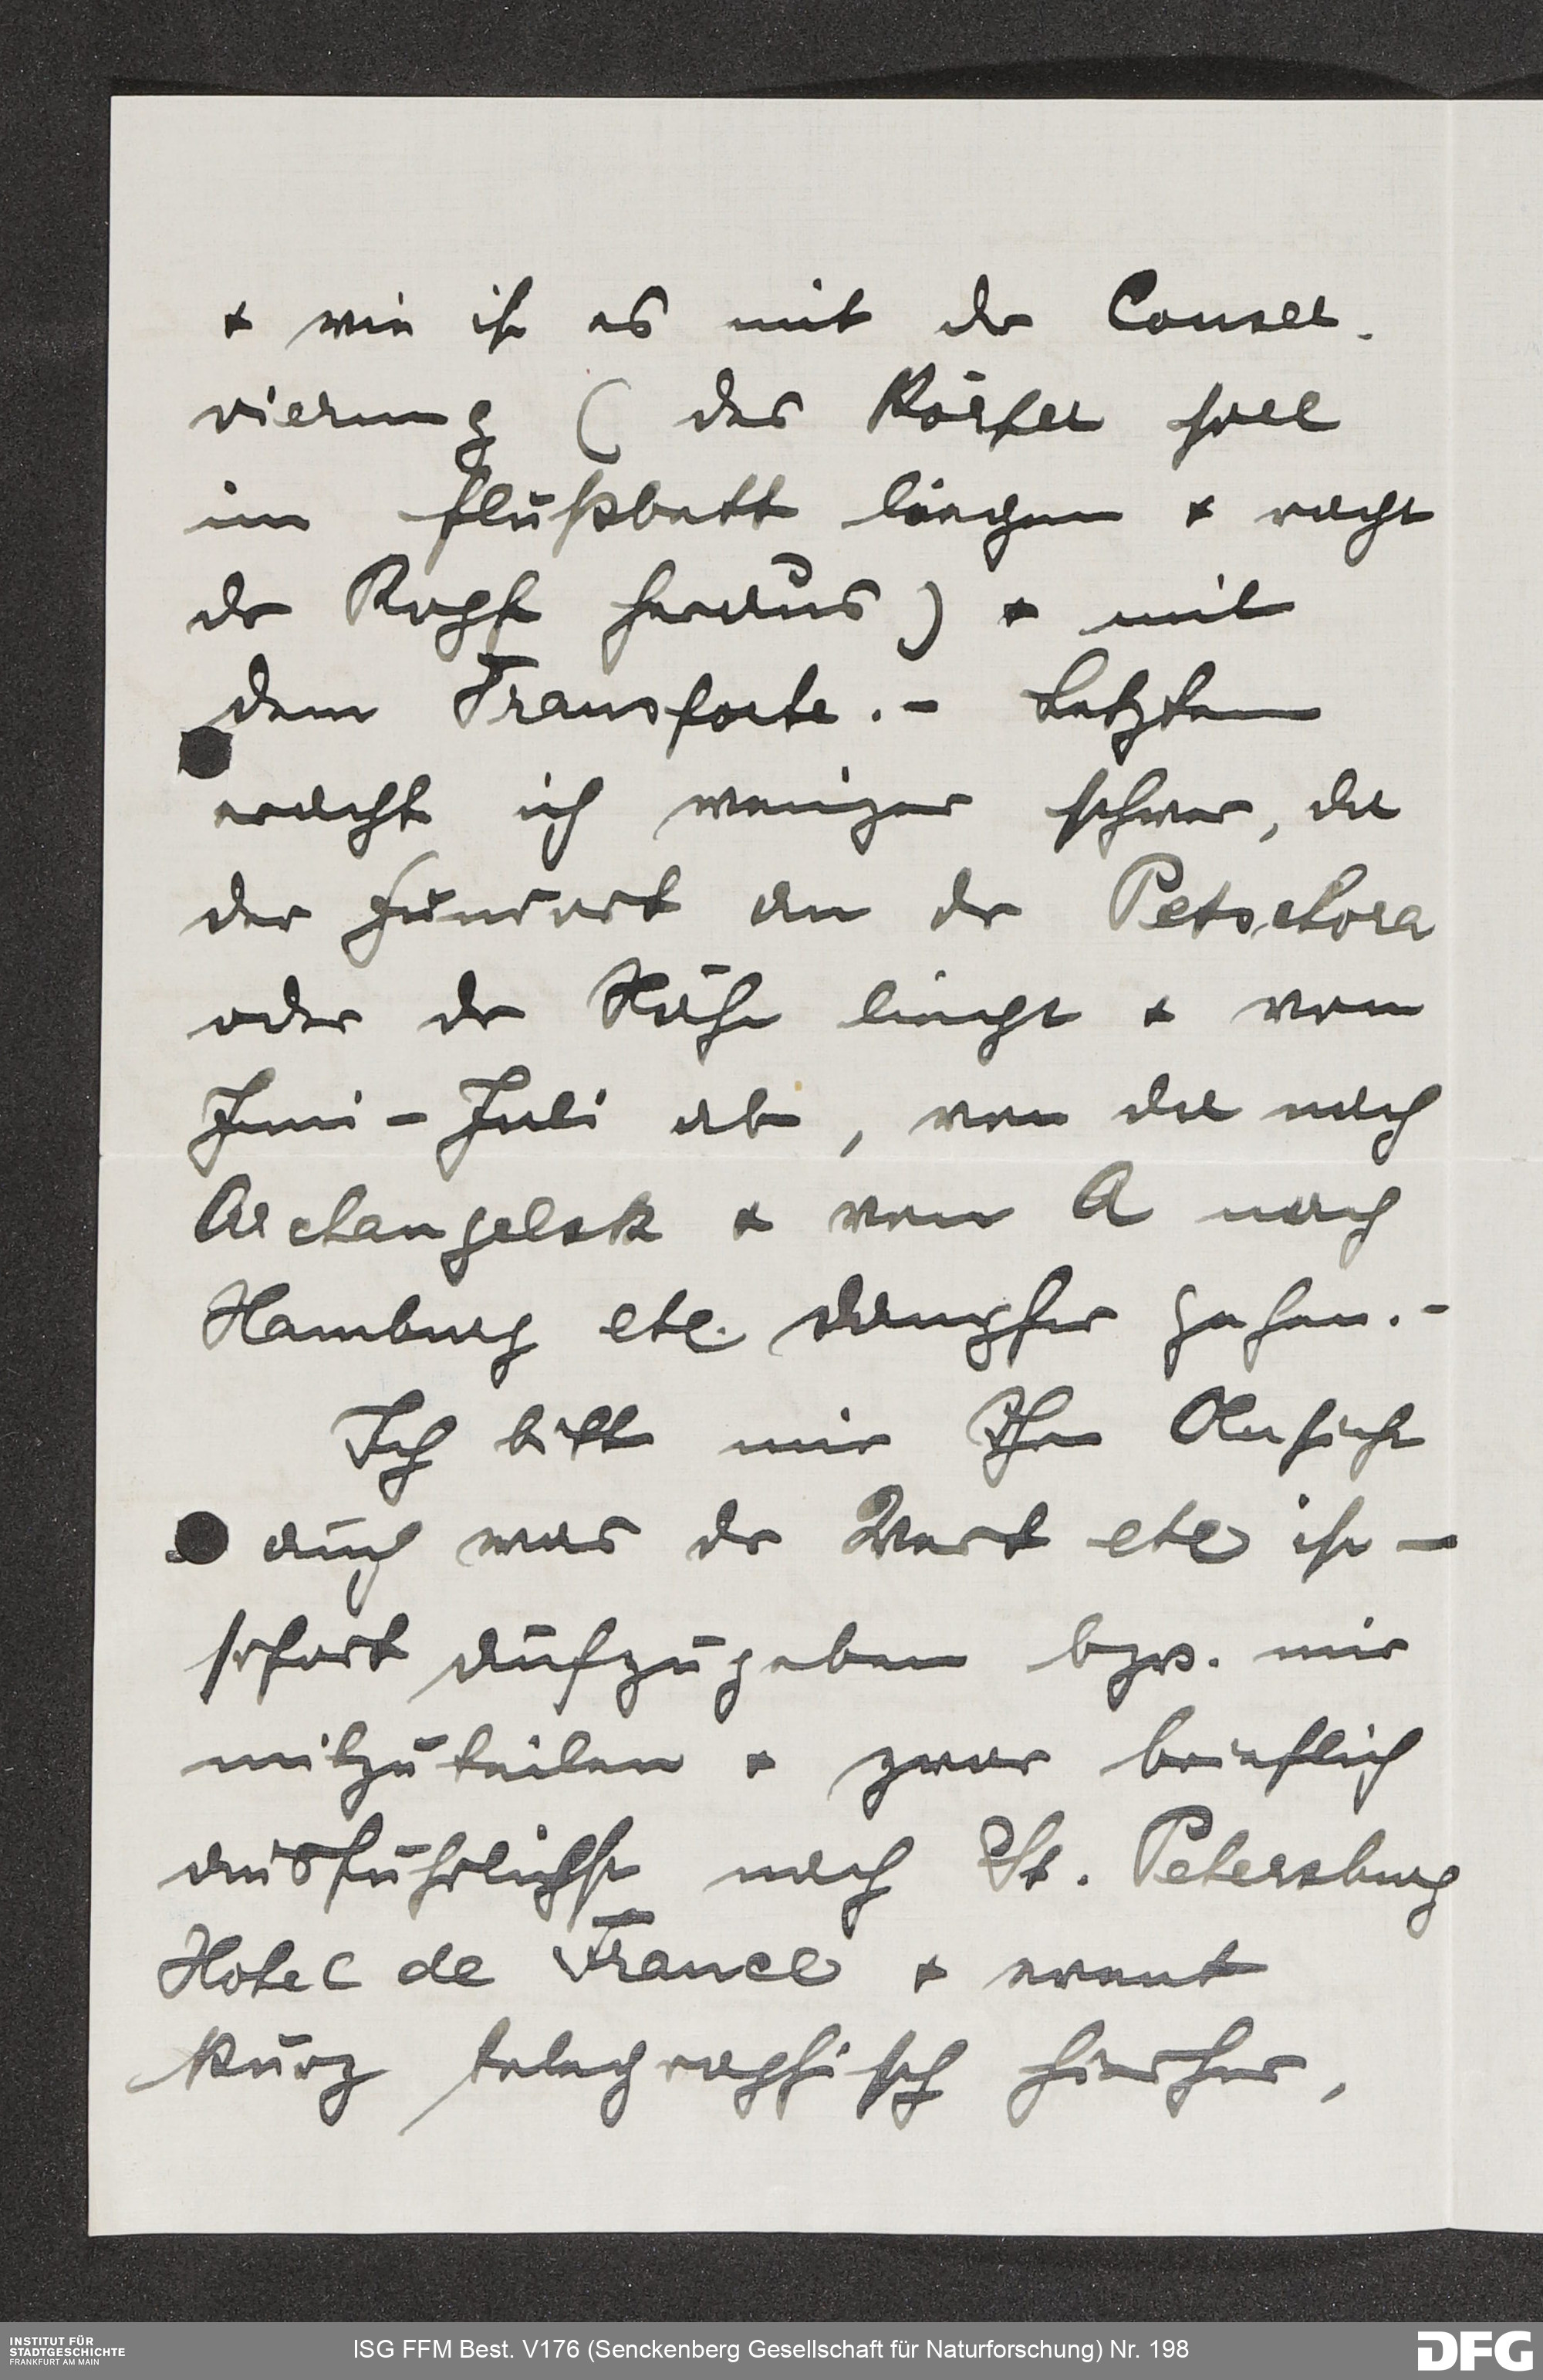 & wie ist es mit der Conser-
vierung (der Körper soll
im Flußbett liegen & ragt
der Kopf heraus) & mit
dem Transporte. - Letzten
eracht ich weniger schwer, da
der Fundort an der Petschora
oder der Nähe liegt & vom
Juni - Juli ab, von da nach
Archangelsk & von A nach
Hamburg etc. Dampfer gehen. -
Ich bitte mir Ihre Ansicht
auch was der Wert etc ist -
sofort aufzugeben bzw. mir
mitzuteilen & zwar brieflich
ausführlichst nach St. Petersburg
Hotel de France & event
kurz telegraphisch hierher,
INSTITUT FÜR
STADTGESCHICHTE
FRANKFURT AM MAIN
ISG FFM Best. V176 (Senckenberg Gesellschaft für Naturforschung) Nr. 198
DFG